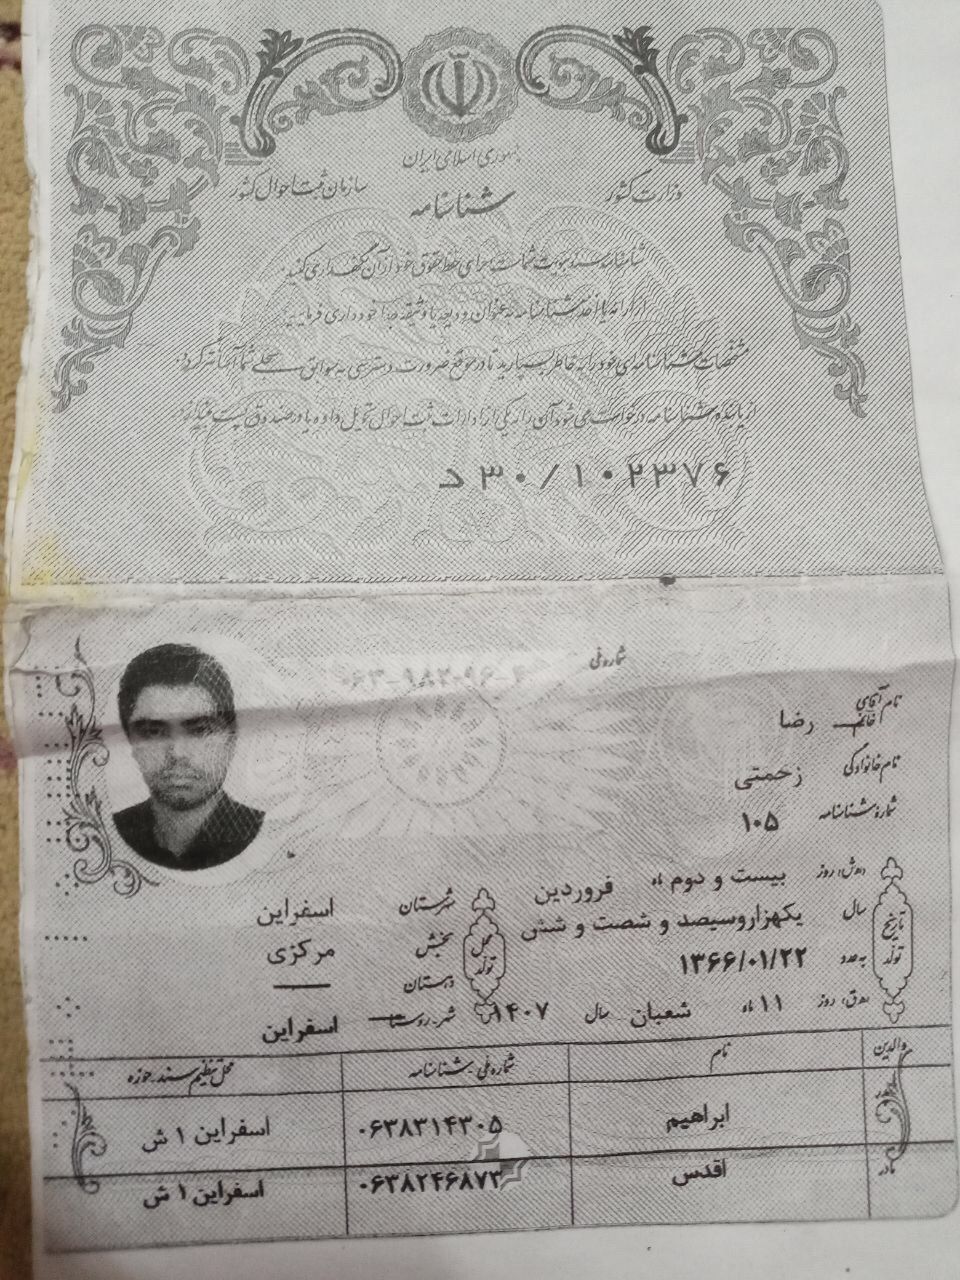 جمهوری اسلامی ایران
وزارت کشور
سازمان ثبت احوال کشور
شناسنامه
شناسنامه سند هویت شماست برای حفظ حقوق خود از آن نگهداری کنید.
از ارائه یا اخذ شناسنامه به عنوان ودیعه یا وثیقه جداً خودداری فرمایید.
مشخصات شناسنامه‌ای خود را به خاطر بسپارید تا در موقع ضرورت دسترسی به سوابق سجلی شما آسانتر گردد.
از یابنده شناسنامه درخواست می‌شود آن را به یکی از ادارات ثبت احوال تحویل داده یا در صندوق پست بیندازد.
د۳۰/۱۰۲۳۷۶
شماره ملی
نام آقای خانم رضا
نام خانوادگی زحمتی
شماره شناسنامه ۱۰۵
تاریخ تولد
(ه.ش) روز بیست و دوم ماه فروردین
سال یکهزاروسیصد و شصت و شش
به عدد ۱۳۶۶/۰۱/۲۲
(ه.ق) روز ۱۱ ماه شعبان سال ۱۴۰۷
محل تولد
شهرستان اسفراین
بخش مرکزی
دهستان
شهر-روستا اسفراین
والدین نام شماره ملی-شناسنامه محل تنظیم سند-حوزه
پدر ابراهیم ۰۶۳۸۳۱۴۳۰۵ اسفراین ۱ ش
مادر اقدس ۰۶۳۸۲۴۶۸۷۳ اسفراین ۱ ش